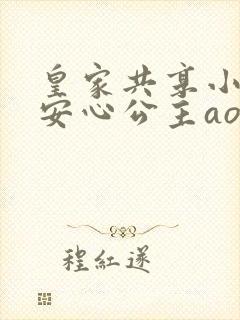 皇家共享小
安心公主ao
程紅遂